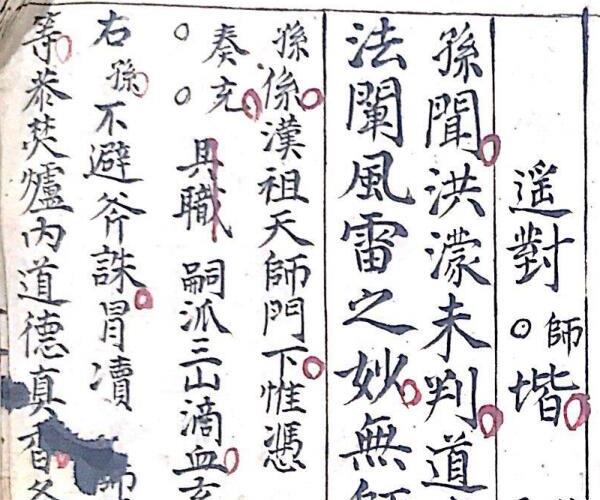 遥對○師堦
孫聞洪濛未判道
法闡風雷之妙無師
孫係漢祖天師門下惟憑
奏充
具職嗣派三山滴血玄
右孫不避斧誅冐凟師
等恭焚爐内道德真香